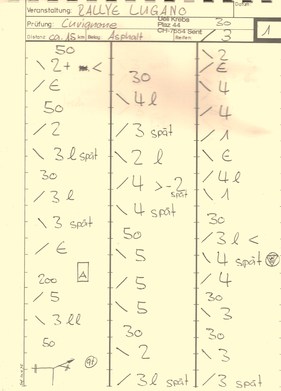 Veranstaltung: RALLYE LUGANO
Prüfung: Cuvignone
Distanz: ca. 15 km Belag: Asphalt
Das Krebs
Plaz 44
CH-7554 Sent
Reifen:
Datum:
1
50
\ 2+ <
/ €
50
/ 2
\ 3 l spät
30
\ 3 l
\ 3 spät
/ €
200
A
/ 5
\ 3 ll
50
30
\ 4 l
/ 3 spät
\ 2 l
/ 4 >-2
spät
\ 4 spät
50
\ 5
/ 5
\ 5
30
\ 2
/ 3 l spät
30
/ 3
\ 2
/ €
\ 4
/ 4
/ 1
\ €
/ 4 l
\ 1
30
/ 3 l <
\ 4 spät
/ 4
30
\ 3
30
\ 3
/ 3 spät